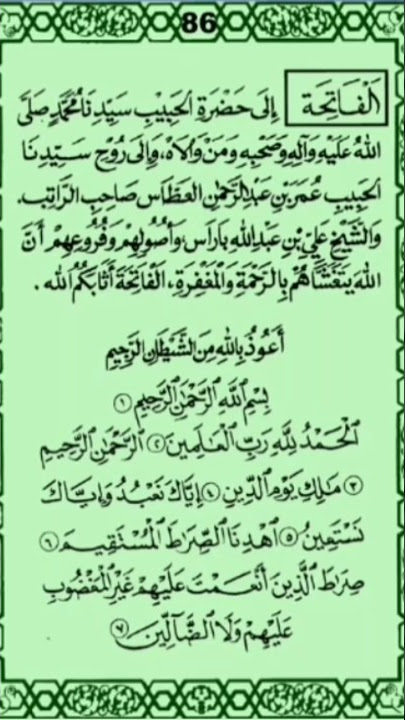 86
اَلْفَاتِحَة إِلَى حَضْرَةِ الْحَبِيبِ سَيِّدِنَا مُحَمَّدٍ صَلَّى
اللهُ عَلَيْهِ وَآلِهِ وَصَحْبِهِ وَمَنْ وَالَاهُ، وَإِلَى رُوحِ سَيِّدِنَا
الْحَبِيبِ عُمَرَ بْنِ عَبْدِ الرَّحْمٰنِ الْعَطَّاسِ صَاحِبِ الرَّاتِبِ.
وَالشَّيْخِ عَلِيِّ بْنِ عَبْدِ اللهِ بَارَاسٍ، وَأُصُولِهِمْ وَفُرُوعِهِمْ أَنَّ
اللهَ يَتَغَشَّاهُمْ بِالرَّحْمَةِ وَالْمَغْفِرَةِ، اَلْفَاتِحَةَ أَثَابَكُمُ الله.
أَعُوذُ بِاللهِ مِنَ الشَّيْطَانِ الرَّجِيمِ
بِسْمِ ٱللَّهِ ٱلرَّحْمَٰنِ ٱلرَّحِيمِ ١
ٱلْحَمْدُ لِلَّهِ رَبِّ ٱلْعَٰلَمِينَ ٢ ٱلرَّحْمَٰنِ ٱلرَّحِيمِ
٣ مَٰلِكِ يَوْمِ ٱلدِّينِ ٤ إِيَّاكَ نَعْبُدُ وَإِيَّاكَ
نَسْتَعِينُ ٥ ٱهْدِنَا ٱلصِّرَٰطَ ٱلْمُسْتَقِيمَ ٦
صِرَٰطَ ٱلَّذِينَ أَنْعَمْتَ عَلَيْهِمْ غَيْرِ ٱلْمَغْضُوبِ
عَلَيْهِمْ وَلَا ٱلضَّآلِّينَ ٧